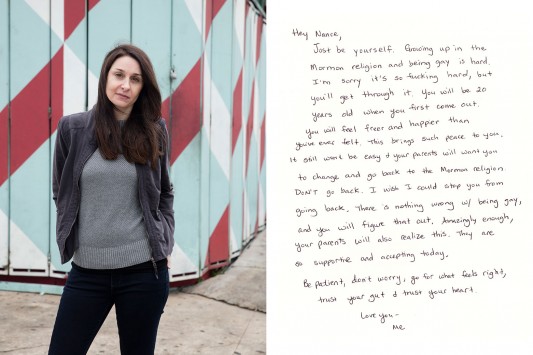 Hey Nance,
Just be yourself. Growing up in the
Mormon religion and being gay is hard.
I'm sorry it's so fucking hard, but
you'll get through it. You will be 20
years old when you first come out.
You will feel freer and happier than
you've ever felt. This brings such peace to you.
It still won't be easy & your parents will want you
to change and go back to the Mormon religion.
DON'T go back. I wish I could stop you from
going back. There is nothing wrong w/ being gay,
and you will figure that out. Amazingly enough,
your parents will also realize this. They are
so supportive and accepting today.
Be patient, don't worry, go for what feels right,
trust your gut & trust your heart.
Love you-
Me